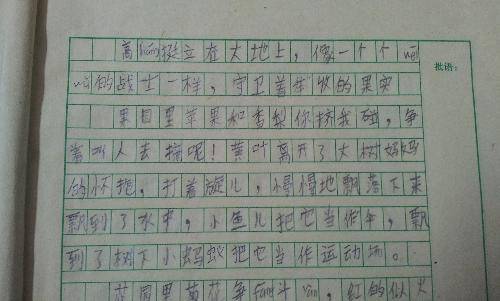 批语:
高liáng挺立在大地上,像一个个wēi
wǔ的战士一样,守卫着丰收的果实
果园里苹果和香梨你挤我碰,争
着叫人去摘呢!黄叶离开了大树妈妈
的怀抱,打着旋儿,慢慢地飘落下来
飘到了水中,小鱼儿把它当作伞,飘
到了树下小蚂蚁把它当作运动场。
花园里菊花争fāng斗yàn,红的似火